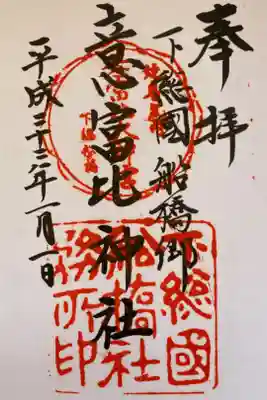 奉拝
下総國船橋郷
意富比神社
平成二十二年一月一日
下総國
船橋社
務所印